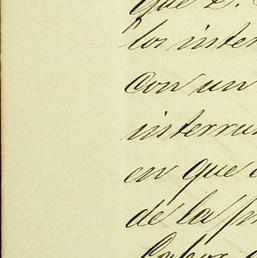 que D.
los inter
con un
interru
en que
de la pr